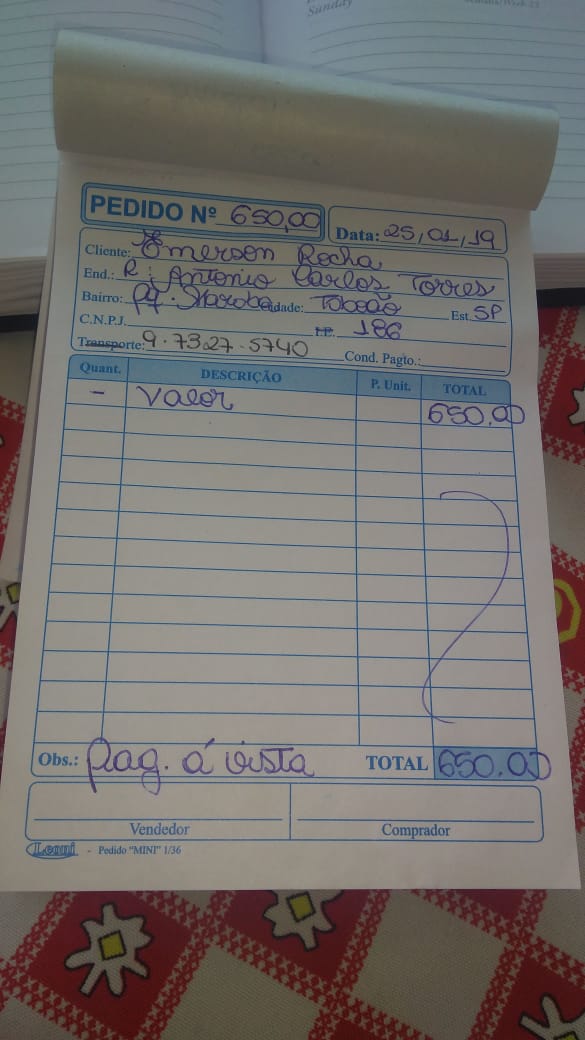 Sunday
PEDIDO Nº 650,00
Data: 25/01/19
Cliente: Emerson Rocha
End.: R: Antonio Carlos Torres
Bairro: Pq. idade: Taboão Est. SP
C.N.P.J. I.E. 186
Transporte: 9.7327-5740 Cond. Pagto.:
Quant. DESCRIÇÃO P. Unit. TOTAL
- Valor 650.00
Obs.: Pag. á vista TOTAL 650.00
Vendedor Comprador
Leoni - Pedido "MINI" 1/36